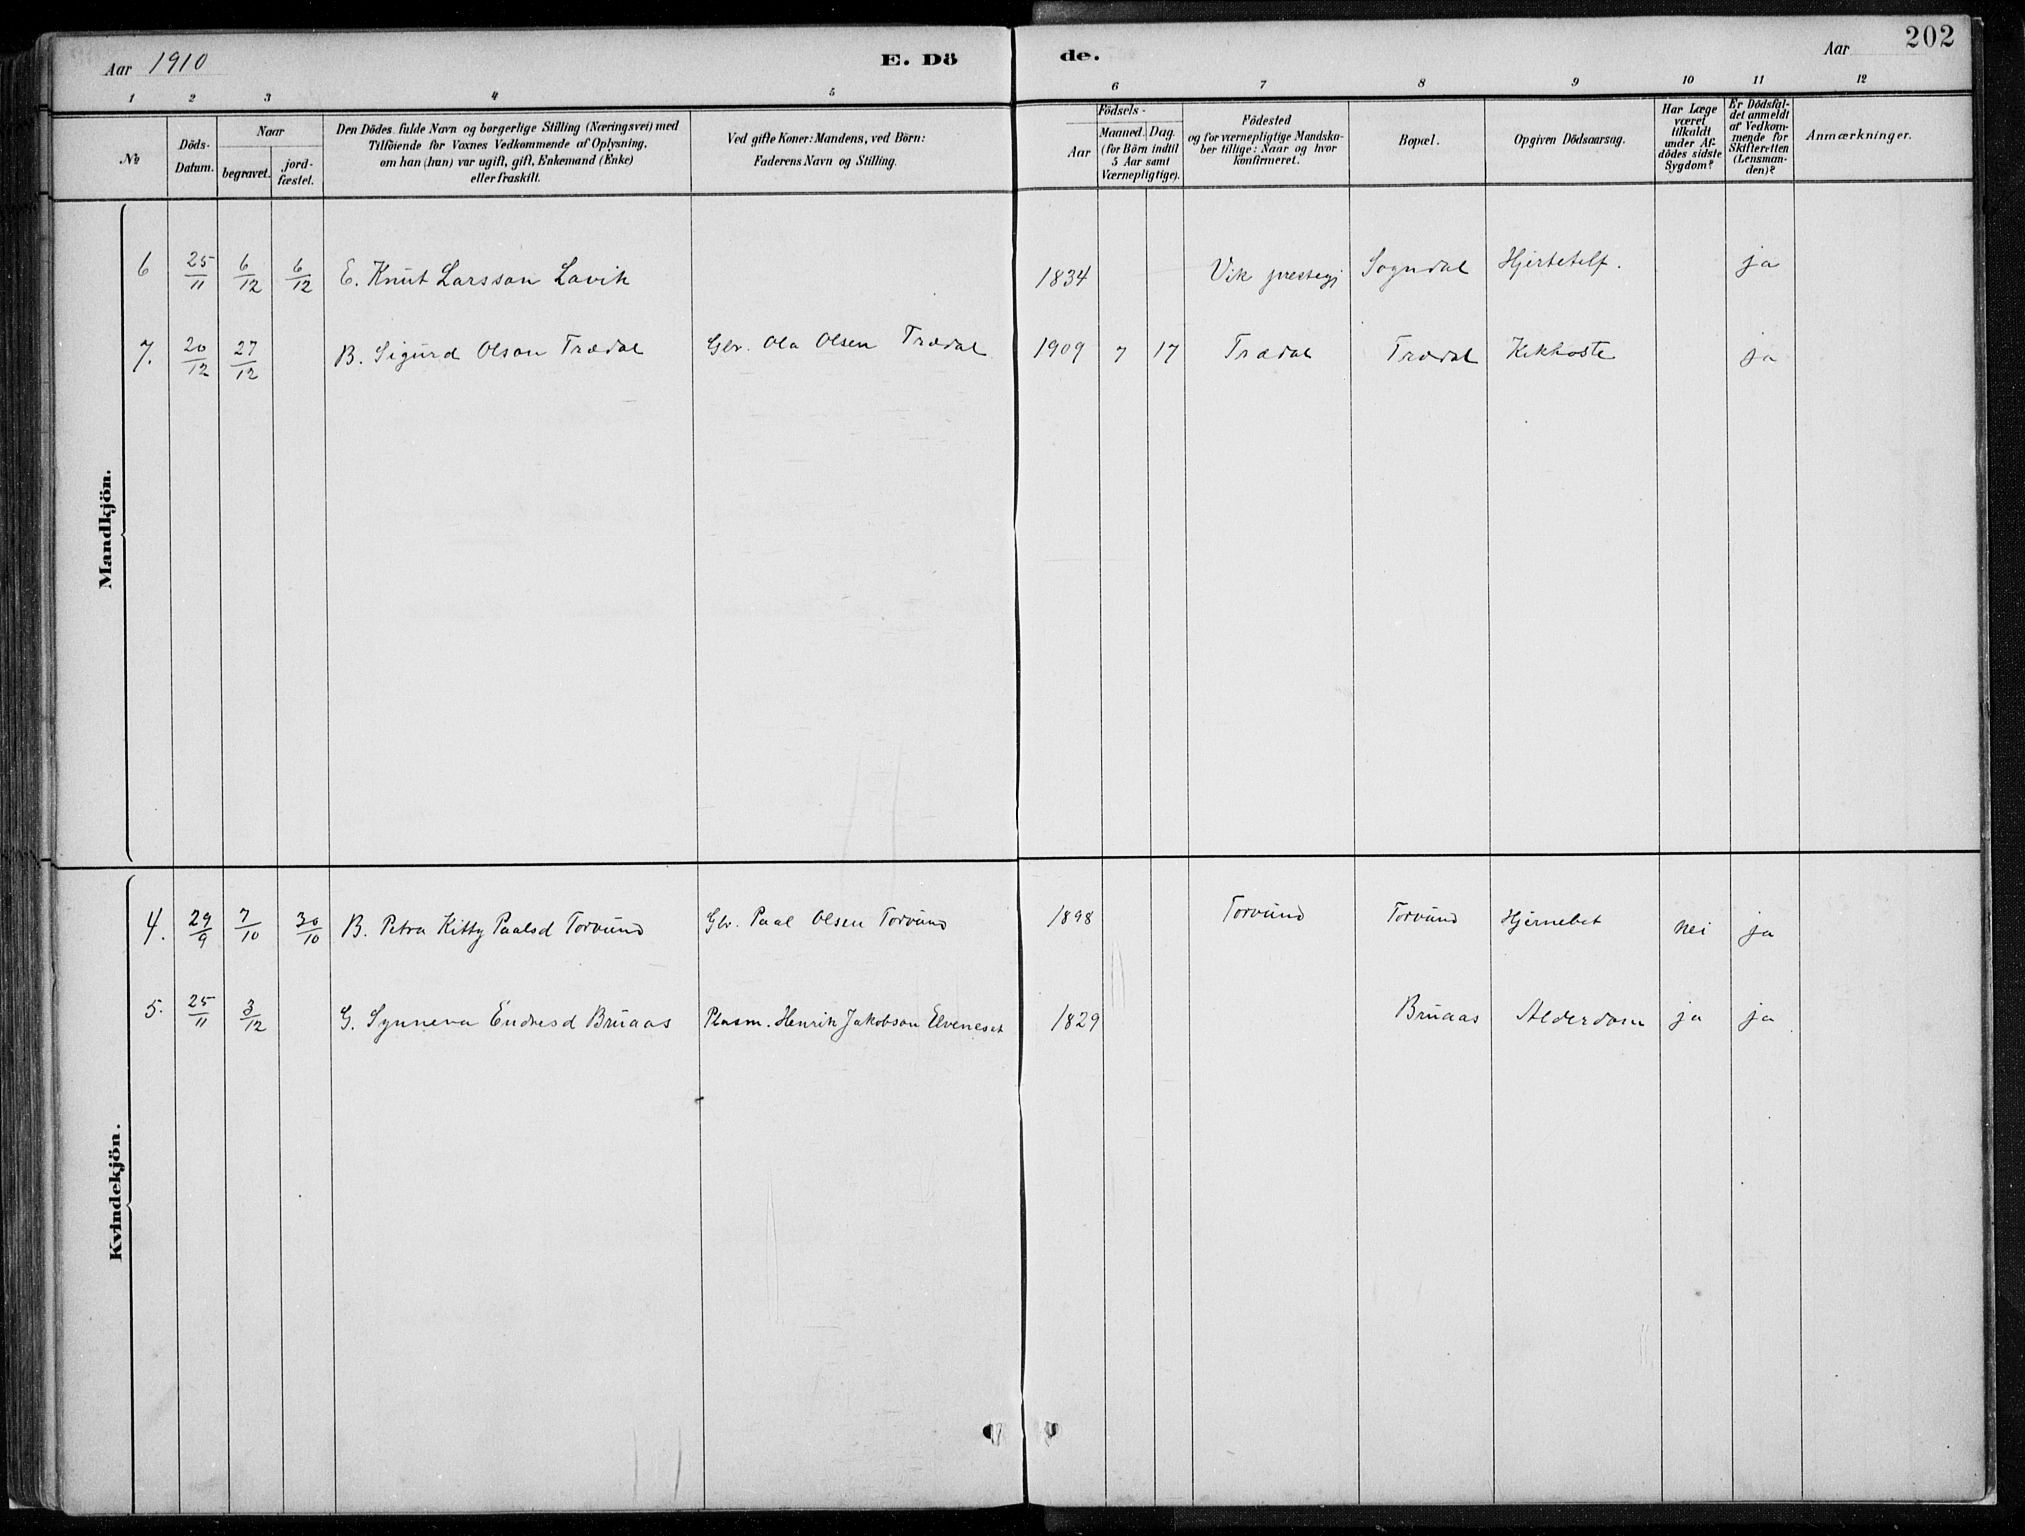 Aar 1910 E. Dö de. Aar 202
1 2 3 4 5 6 7 8 9 10 11 12
No
Döds-Datum.
Naar
begravet. jord-fæstet.
Den Dödes fulde Navn og borgerlige Stilling (Næringsvei) med
Tilföiende for Voxnes Vedkommende af Oplysning,
om han (hun) var ugift, gift, Enkemand (Enke)
eller fraskilt.
Ved gifte Koner: Mandens, ved Börn:
Faderens Navn og Stilling.
Födsels-
Aar
Maaned. Dag.
(for Börn indtil
5 Aar samt
Værnepligtige).
Födested
og for værnepligtige Mandska-
ber tillige: Naar og hvor
konfirmeret.
Bopæl.
Opgiven Dödsaarsag.
Har Læge
været
tilkaldt
under Af-
dödes sidste
Sygdom?
Er Dödsfal-
det anmeldt
af Vedkom-
mende for
Skifteretten
(Lensman-
den)?
Anmærkninger.
Mandkjön.
6 25/11 6/12 6/12 E. Knut Larsson Lavik 1834 Vik prestegj Sogndal Hjertetelf. ja
7. 20/12 27/12 B. Sigurd Olson Trædal Gbr. Ola Olsen Trædal 1909 7 17 Trædal Trædal Kikhoste ja
Kvindekjön.
4. 29/9 7/10 30/10 B. Petra Kitty Paalsd Torvund Gbr. Paal Olsen Torvund 1898 Torvund Torvund Hjernebet nei ja
5. 25/11 3/12 G. Synneva Endresd Bruaas Plasm. Henrik Jakobson Elveneset 1829 Bruaas Alderdom ja ja